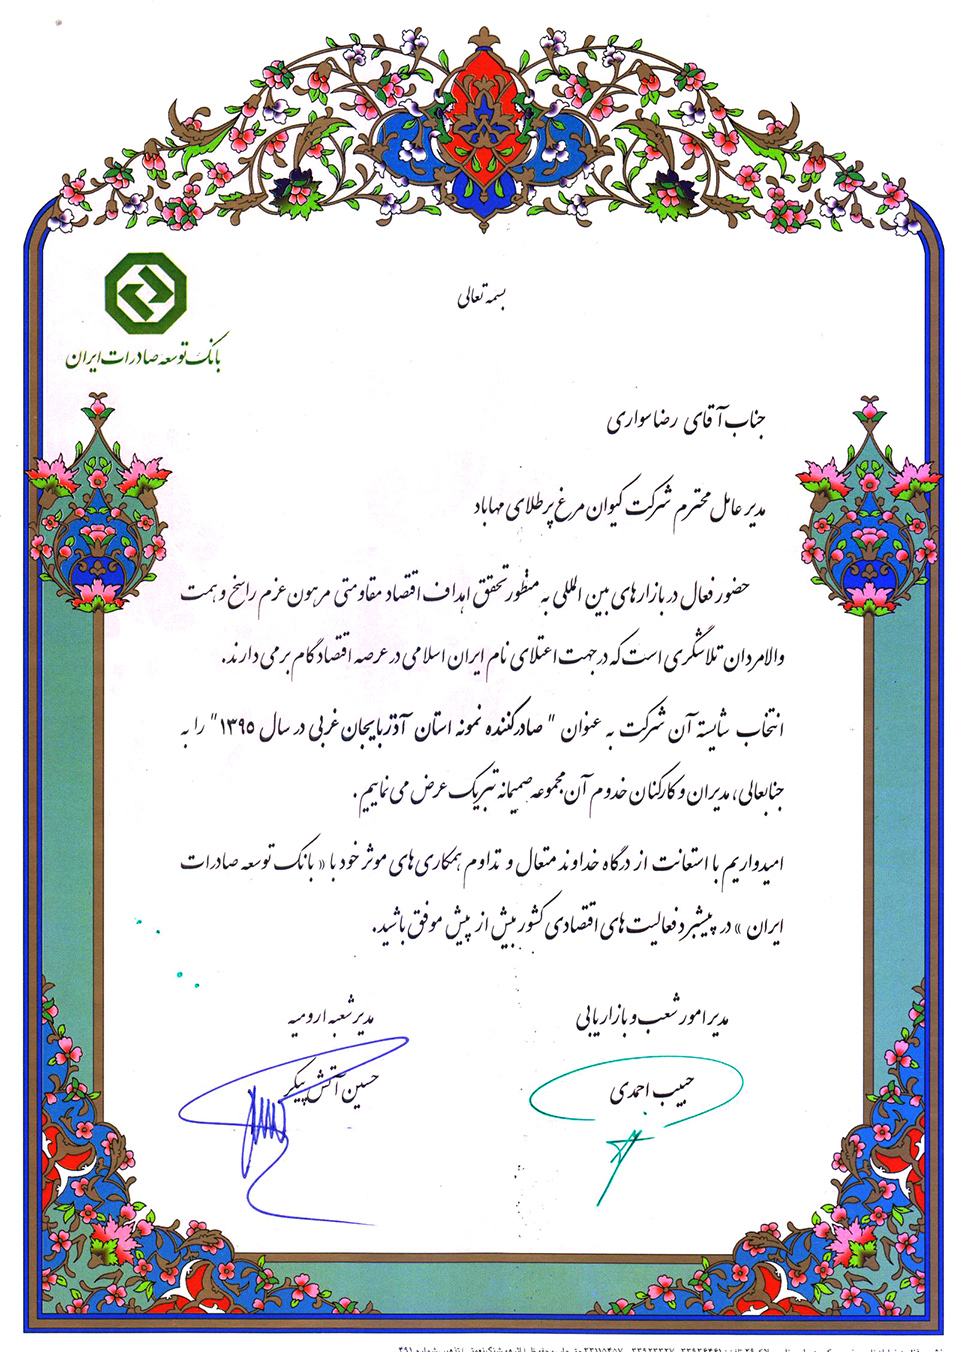 بسمه تعالی
بانک توسعه صادرات ایران
جناب آقای رضا سواری
مدیر عامل محترم شرکت کیوان مرغ پر طلای مهاباد
حضور فعال در بازارهای بین المللی به منظور تحقق اهداف اقتصاد مقاومتی مرهون عزم راسخ و همت
والامردان تلاشگری است که در جهت اعتلای نام ایران اسلامی در عرصه اقتصاد گام برمی دارند.
انتخاب شایسته آن شرکت به عنوان " صادرکننده نمونه استان آذربایجان غربی در سال ۱۳۹۵" را به
جنابعالی، مدیران و کارکنان خدوم آن مجموعه صمیمانه تبریک عرض می نماییم .
امیدواریم با استعانت از درگاه خداوند متعال و تداوم همکاری های موثر خود با « بانک توسعه صادرات
ایران » در پیشبرد فعالیت های اقتصادی کشور بیش از پیش موفق باشید.
مدیر امور شعب و بازاریابی
مدیر شعبه ارومیه
حبیب احمدی
حسین آتش پیکر